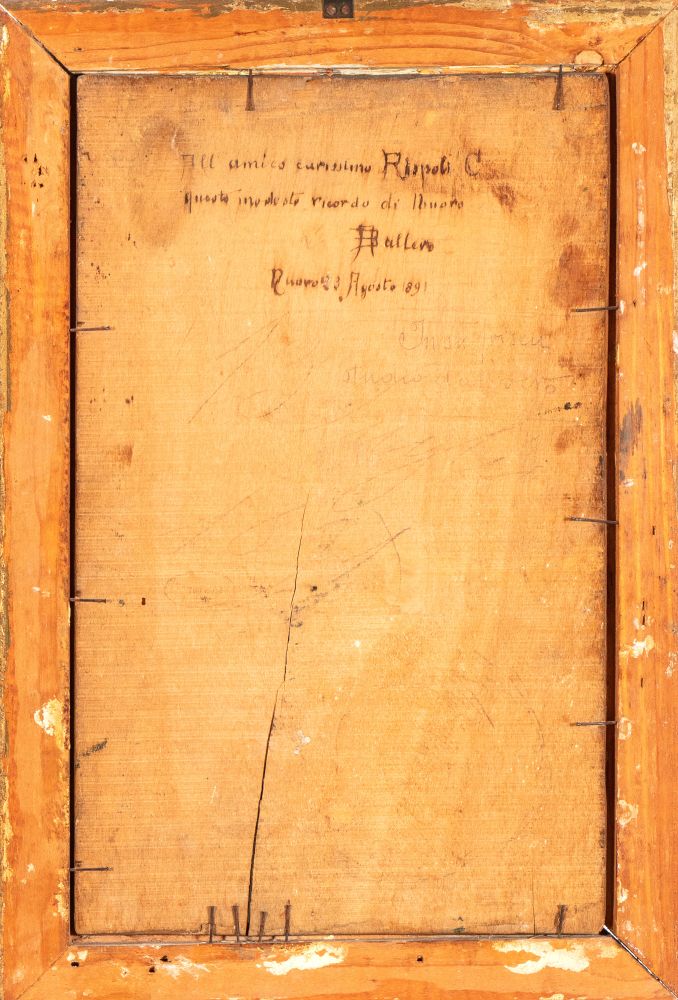 All amico carissimo Rispoli C
questo modesto ricordo di Nuoro
A Ballero
Nuoro 23 Agosto 1891